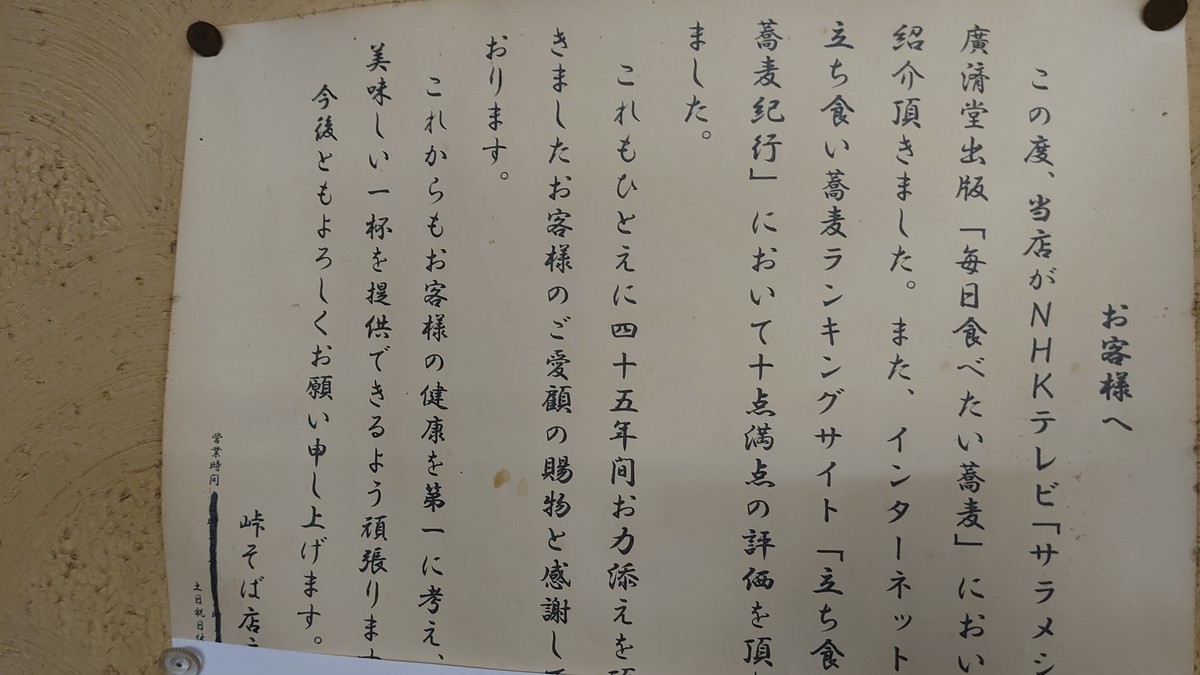 お客様へ
この度、当店がNHKテレビ「サラメシ
廣済堂出版「毎日食べたい蕎麦」におい
紹介頂きました。また、インターネット
立ち食い蕎麦ランキングサイト「立ち食
蕎麦紀行」において十点満点の評価を頂
ました。
これもひとえに四十五年間お力添えを頂
きましたお客様のご愛顧の賜物と感謝し
おります。
これからもお客様の健康を第一に考え、
美味しい一杯を提供できるよう頑張りま
今後ともよろしくお願い申し上げます。
峠そば店
営業時間
土日祝日